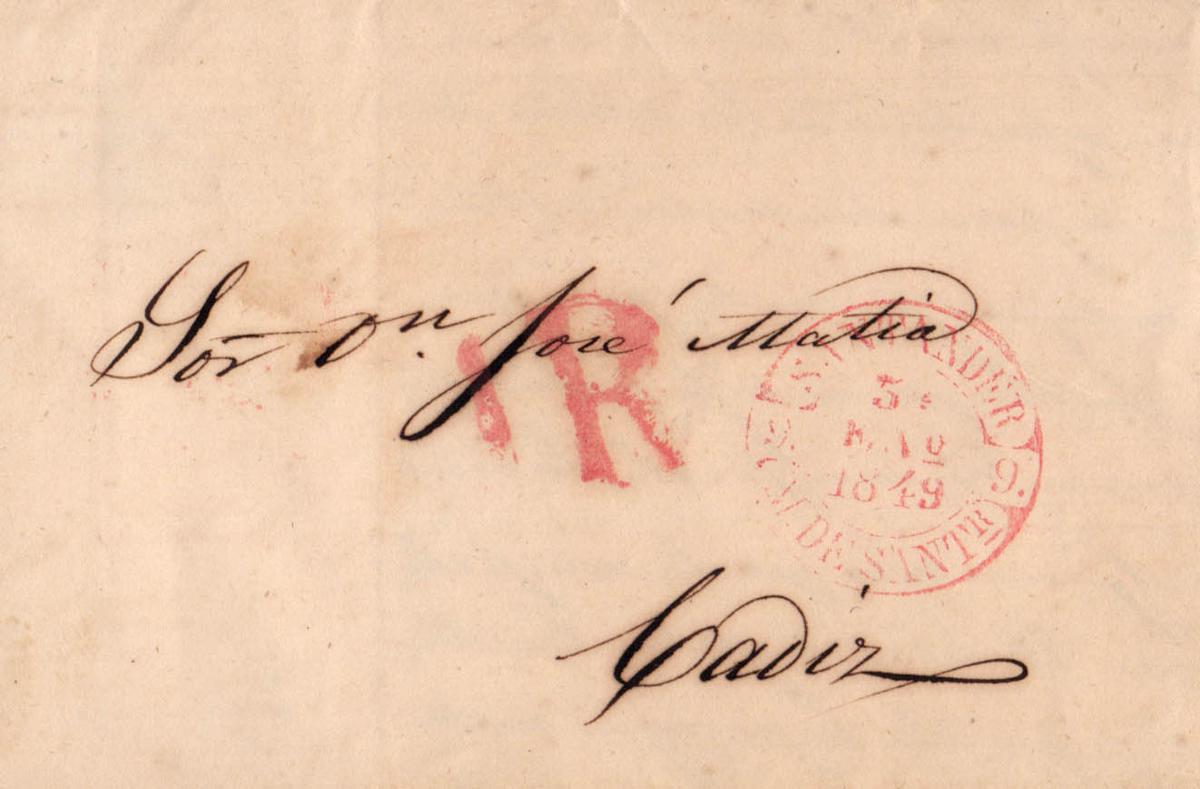 Sor Dn. José Matia
1R
SANTANDER
1849
9.
M. DE SANTR
Cadiz